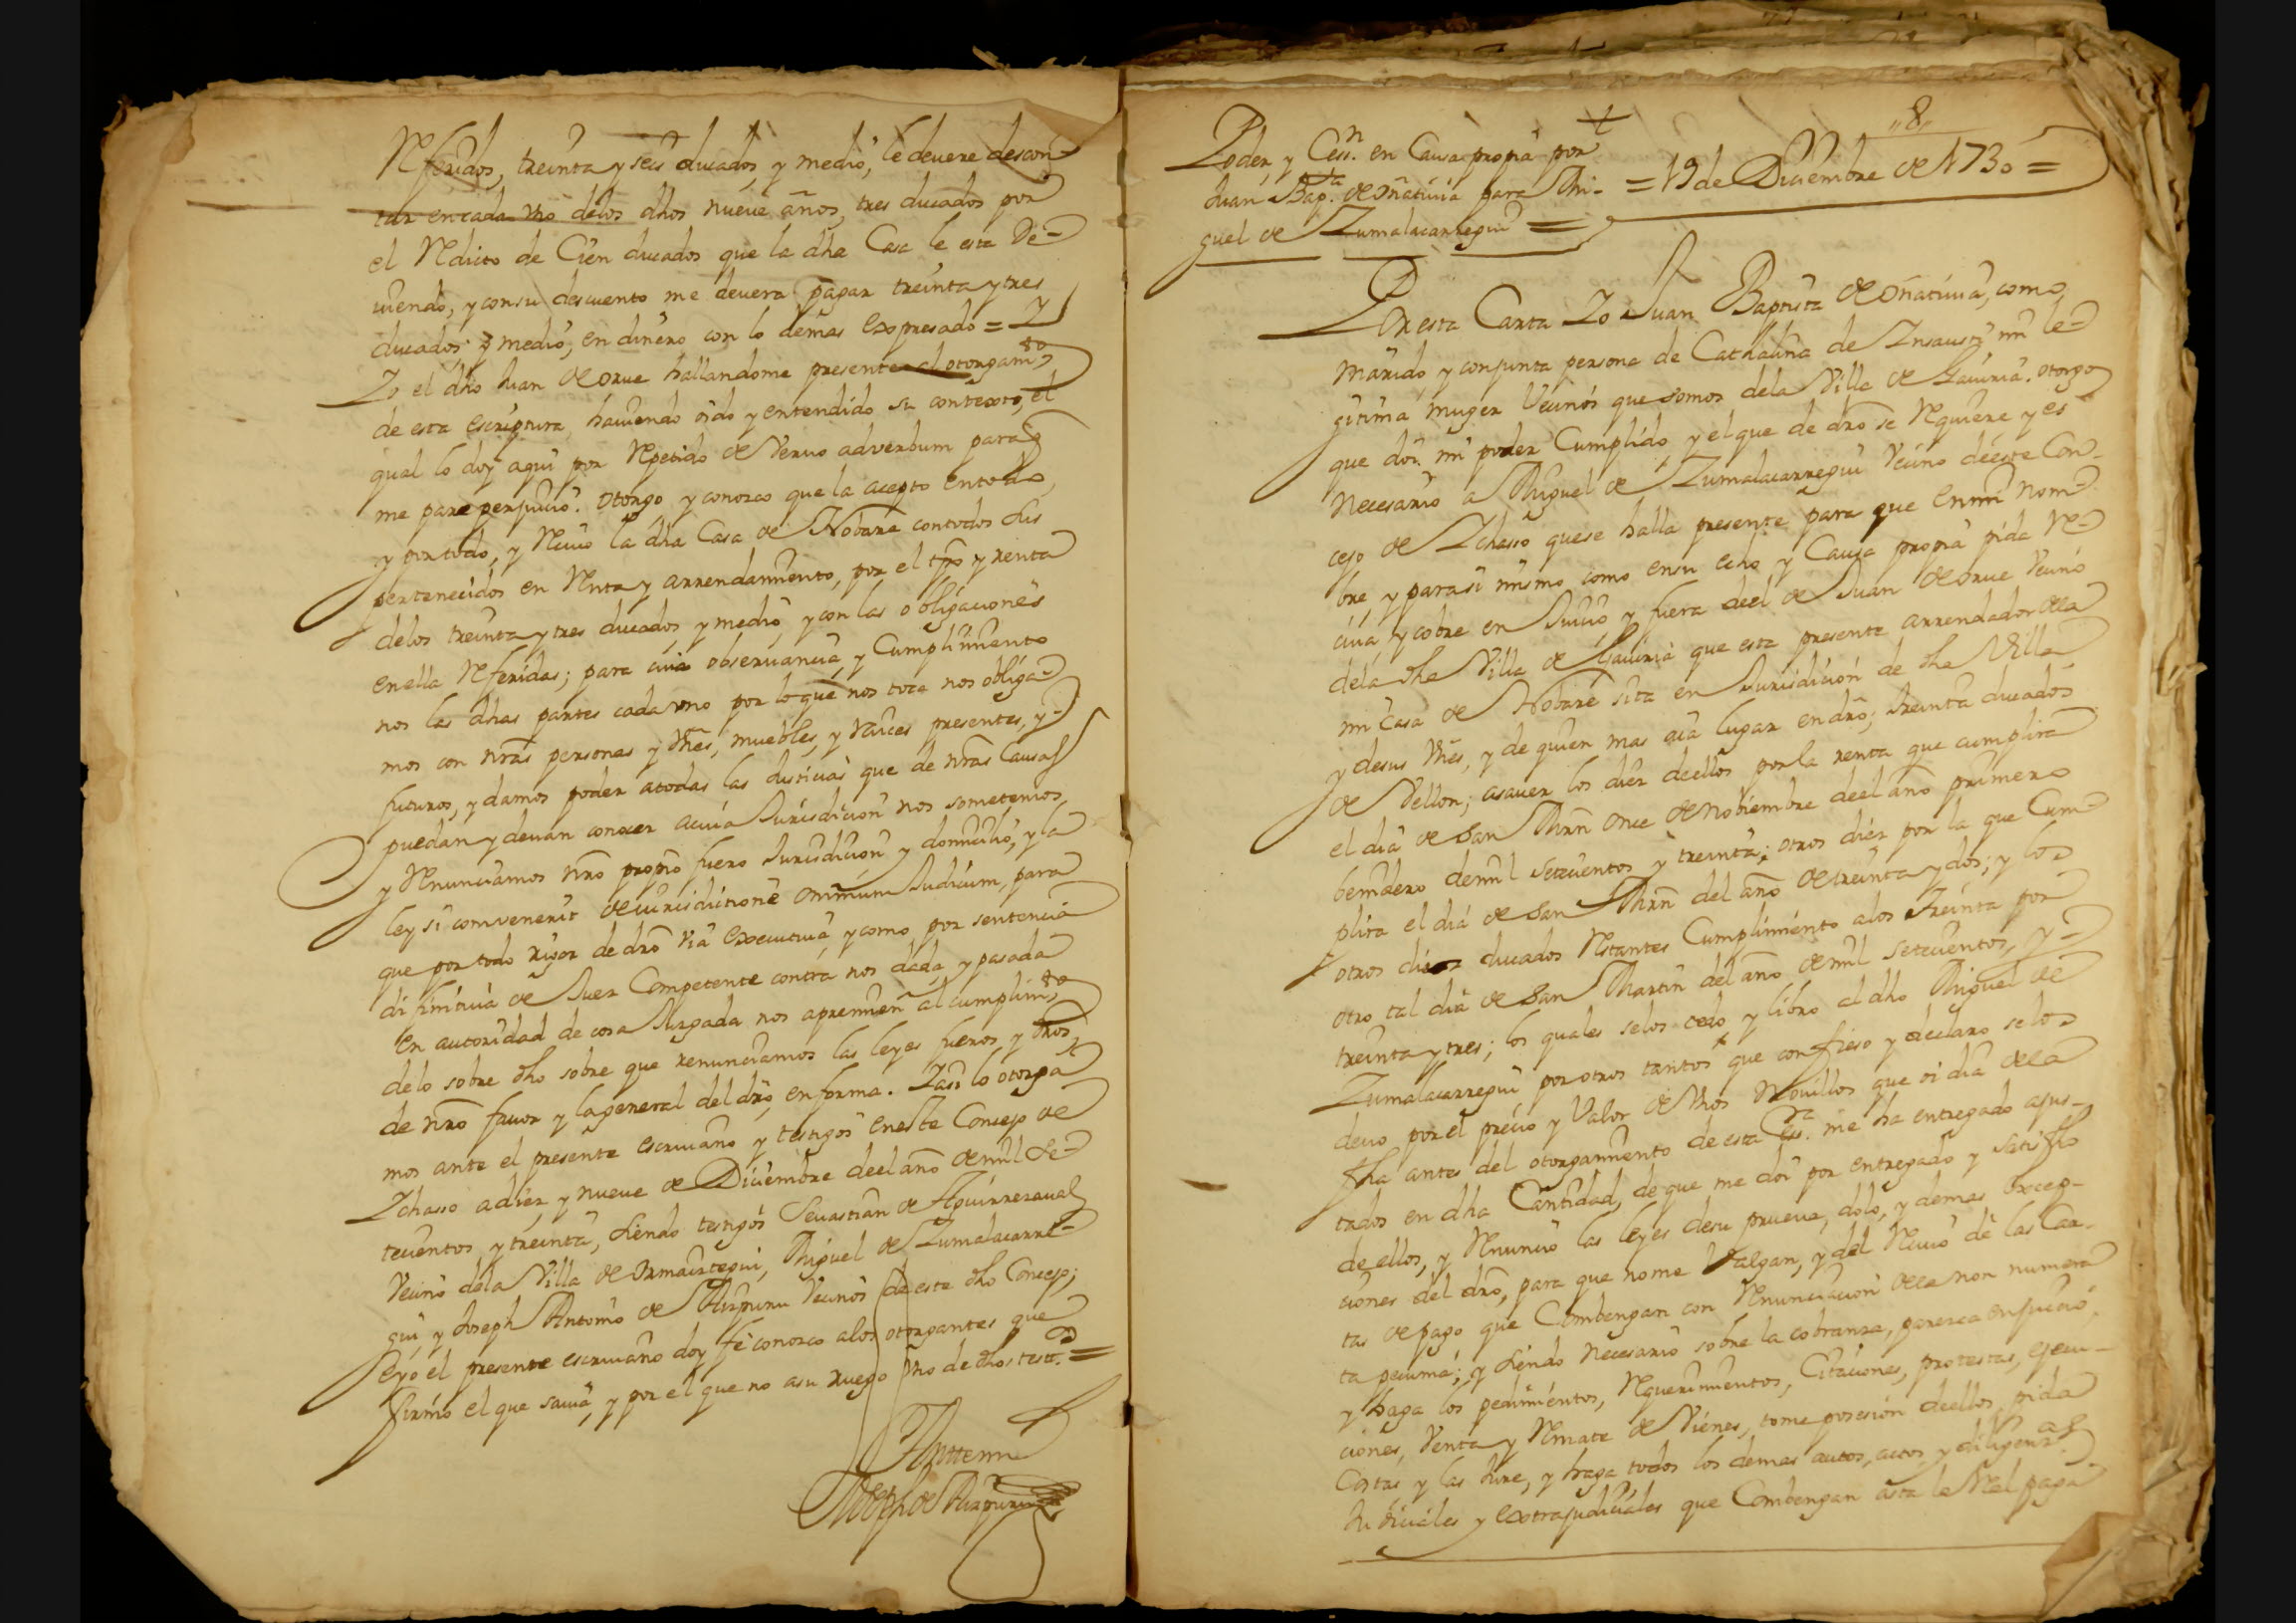 Referidos, treinta y seis ducados, y medio, le devere descon-
tar encada vno delos dhos nueve años, tres ducados por
el Redicto de Cien ducados que la dha Casa le esta De-
uiendo, y consu descuento me devera pagar treinta ytres
ducados y medio, en dinero con lo demas Expresado = Y
Yo el dho Juan de orue hallandome presente al otorgam.to
de esta escriptura, hauiendo oido y entendido su contexto, el
qual lo doy aqui por Repetido de Veruo adverbum para q
me pare perjuicio. otorgo y conozco que la acepto entodo,
y portodo, y Reciuo la dha Casa de Nobare contodos sus
pertenecidos en Renta y arrendamiento, por el tpo y renta
delos treinta ytres ducados y medio, y con las obligaciones
enella Referidas; para cuia obseruancia, y Cumplimiento
nos las dhas partes cada vno por loque nos toca nos obliga-
mos con nras personas y vnes, muebles, y Raices presentes, y-
futuros, y damos poder atodas las Justicias que de nras Causas
puedan y deuan conocer acuia Jurisdicion nos sometemos
y Renunciamos nro propio fuero Jurisdicion y domicilio, y la
ley si convenerit de iurisdictione omnium Judicum, para
que por todo rigor de dro via executiua, y como por sentencia
difinitiua de Juez Competente contra nos dada, y pasada
En autoridad de cosa Juzgada nos apremien al cumplim.to
delo sobre dho sobre que renunciamos las leyes fueros, y dros,
de nro fauor y la general del dro, en forma. Yasi lo otorga-
mos ante el presente escriuano y testigos eneste Concejo de
Ychasso adiez y nueve de Diciembre deel año demil se-
tecientos y treinta, siendo testigos Seuastian de Aguirrezaual
Vecino dela Villa de Ormaiztegui, Miguel de Zumalacarre-
gui, y Joseph Antonio de Aizpuru Vecinos de este dho Concejo;
eyo el presente escriuano doy fe conozco alos otorgantes que
firmo el que sauia, y por el que no asu ruego vno de dhos testi.os =
Antemi
Joseph de Aizpuru
8
Poder, y Cess.n en Causa propia por
Juan Bap.ta de oñatiuia para Mi- = 19 de Diciembre de 1730 =
guel de Zumalacarregui =
Por esta Carta Yo Juan Baptista de oñatiuia, como
marido, y conjunta persona de Cathalina de Insausti mi le-
gitima muger Vecinos que somos dela Villa de Gauiria. otorgo
que doi mi poder Cumplido, y el que de dro se Requiere y es
necesario a Miguel de Zumalacarregui Vecino deeste Con-
cejo de Ychasso quese halla presente para que Enmi nom-
bre, y parasi mismo como ensu echo y Causa propia pida Re-
ciua, y cobre en Juicio, y fuera deel de Juan de orue Vecino
dela dha Villa de Gauiria que esta presente arrendador dela
mi Casa de Nobare sita en Jurisdicion de dha Villa
y desus vnes, y de quien mas aia lugar endro; treinta ducados
de Vellon; asauer los diez deellos por la renta que cumplira
el dia de San Mrn Once de Nobiembre deel año primero
benidero demil setecientos y treinta; otros diez por la que Cum-
plira el dia de San Mrn del año de treinta y dos; y los
otros diez ducados Restantes Cumplimiento alos treinta por
otro tal dia de San Martin del año demil setecientos, y-
treinta y tres; los quales selos cedo y libro al dho Miguel de
Zumalacarregui por otros tantos que confieso y declaro selos
deuo por el precio y Valor de vnos Nouillos que oi dia dela
fha antes del otorgamiento de esta Ess.ra me ha entregado ajus-
tados en dha Cantidad, de que me doi por entregado y satisfho
de ellos, y Renuncio las leyes desu prueua, dolo, y demas excep-
ciones del dro, para que nome Valgan, y del Reciuo de las Car-
tas de pago que Combengan con Renunciacion dela non numera-
ta pecunia; y siendo necesario sobre la cobranza, parezca enjuicio,
y haga los pedimientos, Requerimientos, Citaciones, protestas, ejecu-
ciones, Venta y Remate de Vienes, tome posesion deellos, pida
Costas y las Jure, y haga todos los demas autos, actos, y diligen.as
Judiciales y extrajudiciales que Combengan asta le Real paga